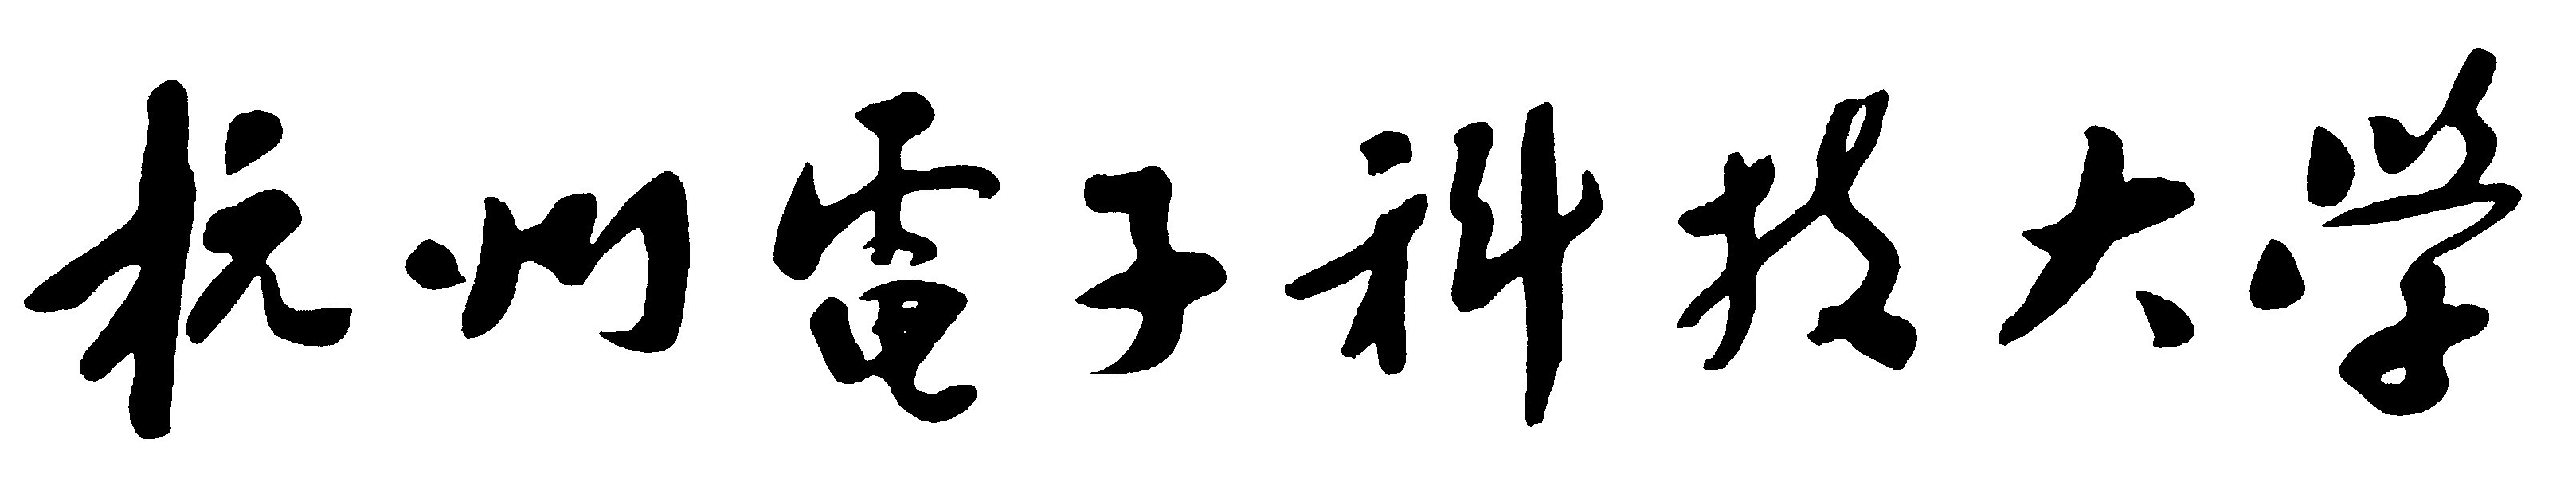 杭州電子科技大学